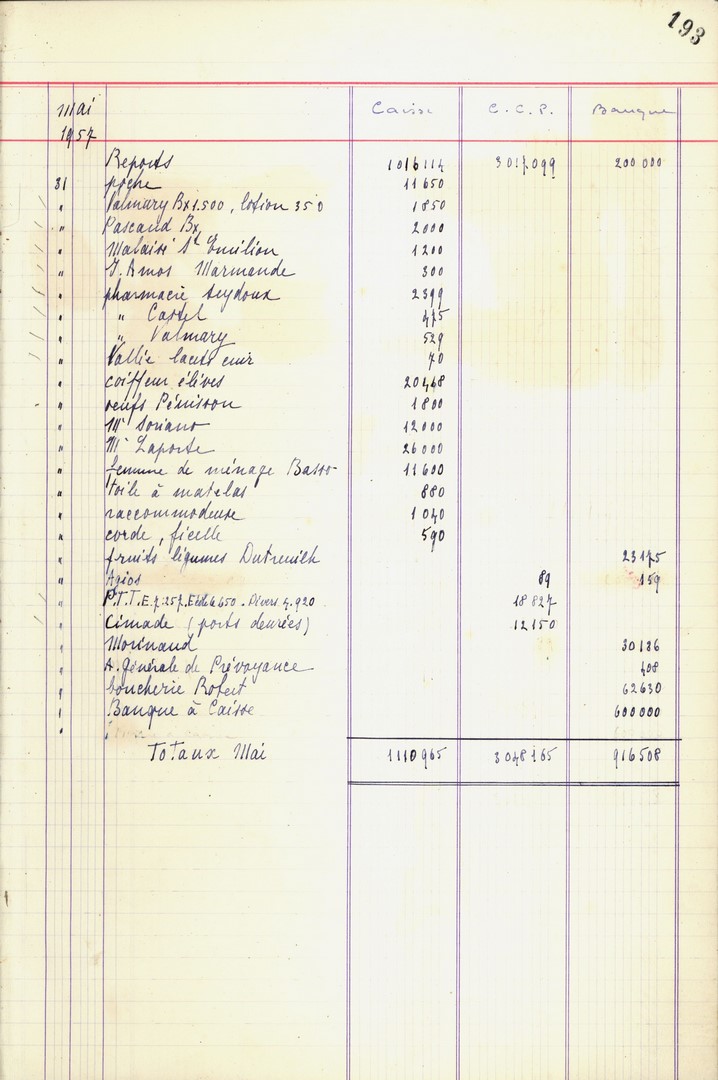 193
Mai 1957 Caisse C.C.P. Banque
Reports 1016114 3017099 200000
31 poche 11650
" Valmary Bx 1.500, lotion 350 1850
" Pascaud Bx 2000
" Malaisé St Emilion 1200
" J. Amos Marmande 300
" pharmacie Seydoux 2399
" " Castel 475
" " Valmary 529
" Vallie lacets cuir 70
" coiffeur élèves 20468
" oeufs Pénisson 1800
" Mr Soriano 12000
" Mr Laporte 26000
" femme de ménage Basso 11600
" toile à matelas 880
" raccommodeuse 1040
" corde, ficelle 590
" fruits légumes Dutreuilh 23175
" Agios 89 159
" P.T.T. E. 7.257. Ecole 6.650. Divers 4.920 18827
" Cimade (ports denrées) 12150
" Morinaud 30136
" A. Générale de Prévoyance 408
" boucherie Robert 62630
" Banque à Caisse 600000
"
Totaux Mai 1110965 3048165 916508